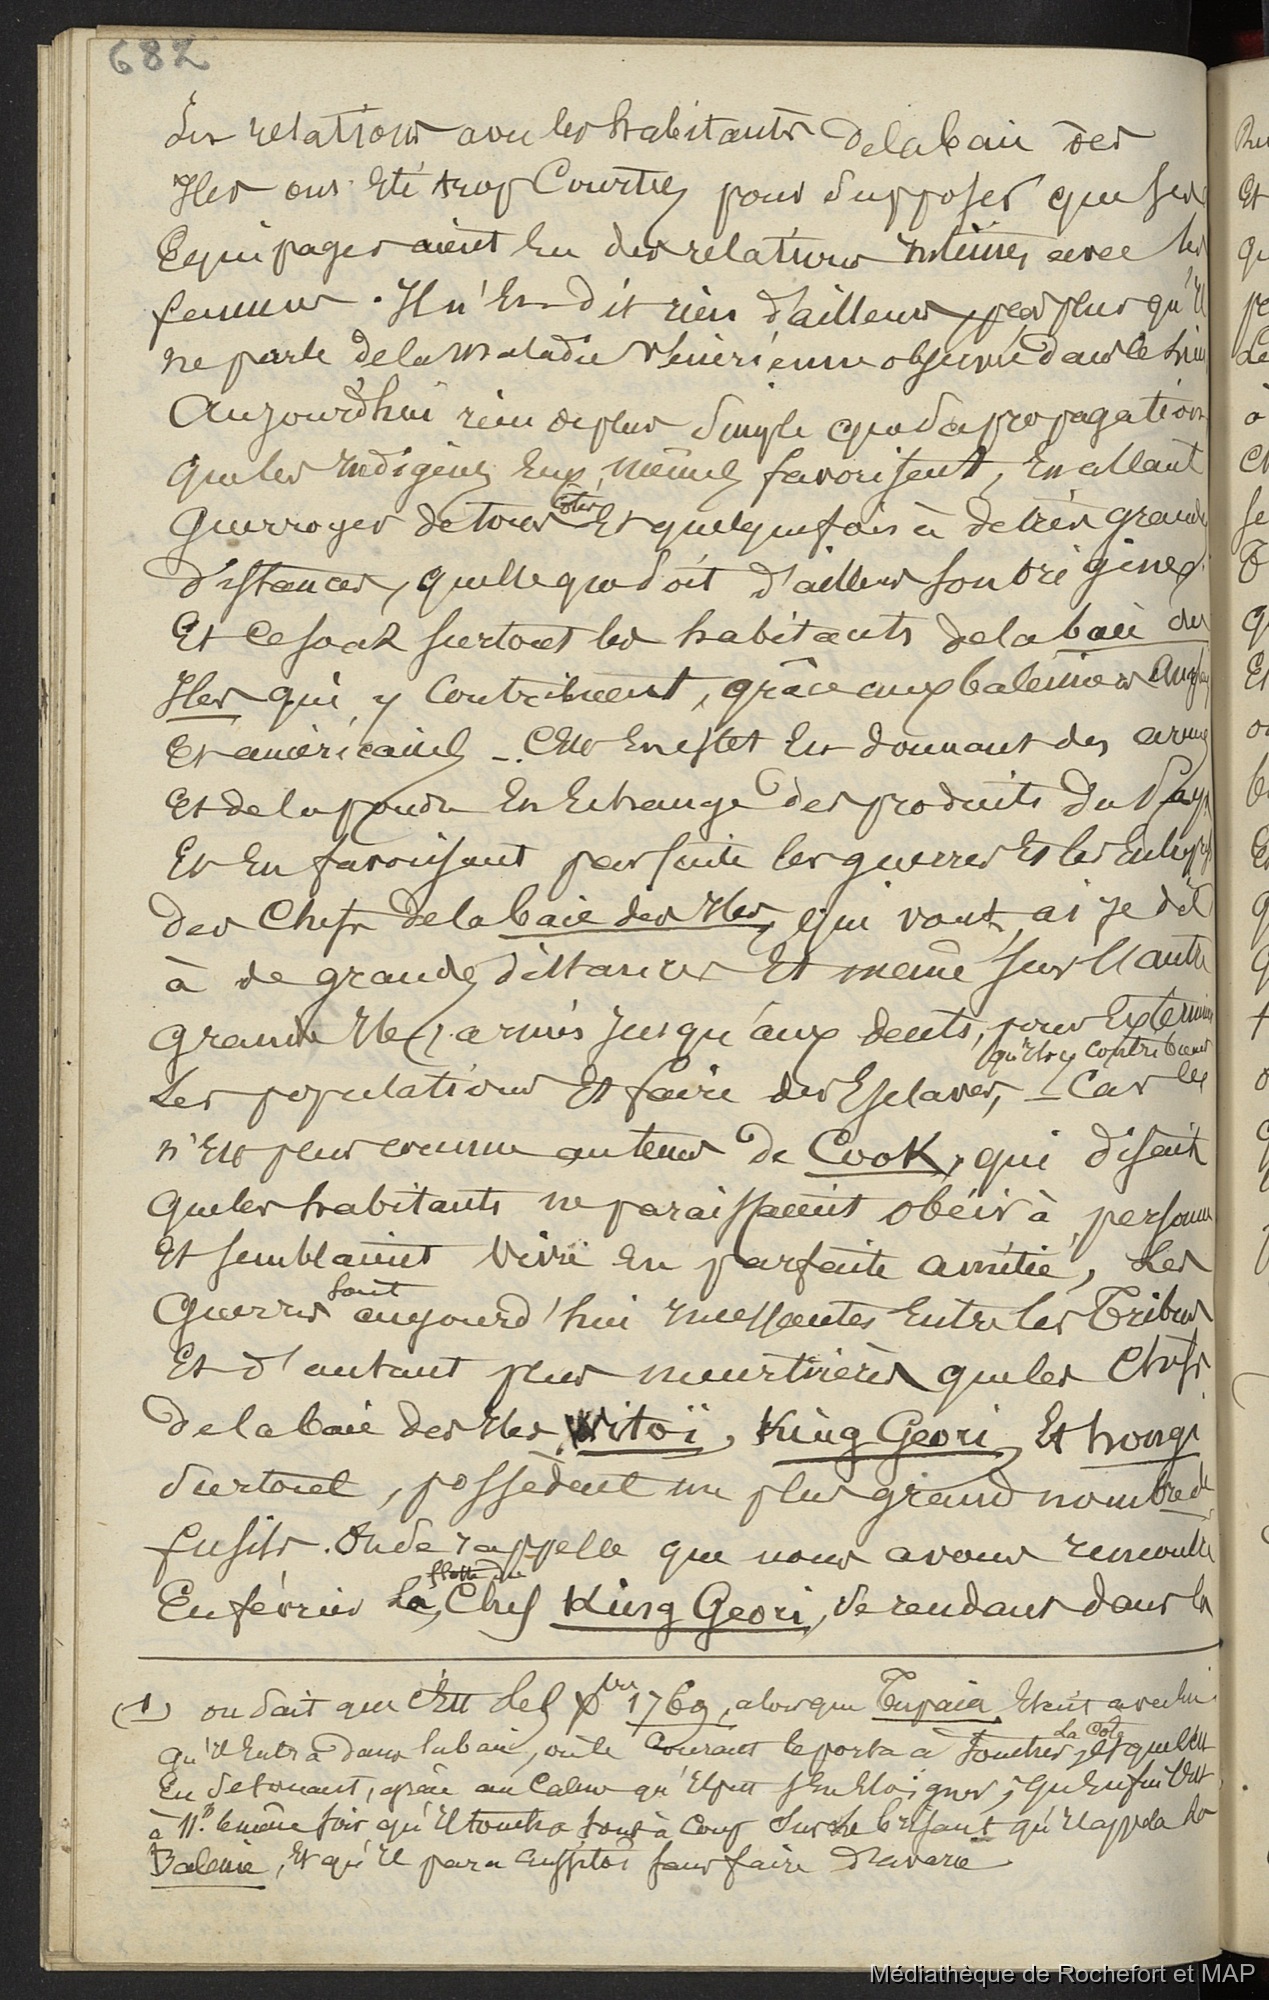 682
Les relations avec les habitants de la baie des
Iles ont été trop Courtes pour supposer que ses
Equipages aient Eu des relations intimes avec les
femmes. Il n'En dit rien d'ailleurs, pas plus qu'il
ne parle de la maladie Vénérienne observée dans le
Aujourd'hui rien de plus Simple que sa propagation
que les indigènes Eux mêmes favorisent, En allant
Guerroyer de tous côtés Et quelquefois à de très grandes
distances, quelle que soit d'ailleurs son origine.
Et Ce sont surtout les habitants de la baie des
Iles qui y Contribuent, grâce aux baleiniers Anglais
Et américains -. C'est En effet En donnant des armes
Et de la poudre En Echange des produits du Pays
Et En favorisant par suite les guerres Et les
des Chefs de la baie des Iles, qui vont, ai je dit
à de grandes distances Et même sur l'autre
Grande Ile, armés jusqu'aux dents, pour Exterminer
Les populations Et faire des Esclaves, qu'ils y contribuent – Car Ce
n'Est plus comme au temps de Cook, qui disait
que les habitants ne paraissaient obéir à personne
Et semblaient Vivre En parfaite amitié, Les
Guerres sont aujourd'hui incessantes Entre les Tribus
Et d'autant plus meurtrières que les Chefs
de la baie des Iles, Witoï, King Geori, Et hongi
Surtout, possèdent un plus grand nombre de
fusils. On se rappelle que nous avons rencontré
En février La flotte du Chef King Geori, se rendant dans la
(1) on sait que c'Est le 5 Xbre 1769, alors que Tupaia Etait avec lui
qu'il Entra dans la baie, où le Courant le porta à toucher La Côte, Et que c'Est
En detonant, grâce au Calme qu'il put s'En Eloigner, qu'Enfin c'Est
à 11h le même soir qu'il toucha tout à Coup Sur le brisant qu'il appela la
Baleine, Et qu'il para aussitôt sans faire d'avarie
Médiathèque de Rochefort et MAP